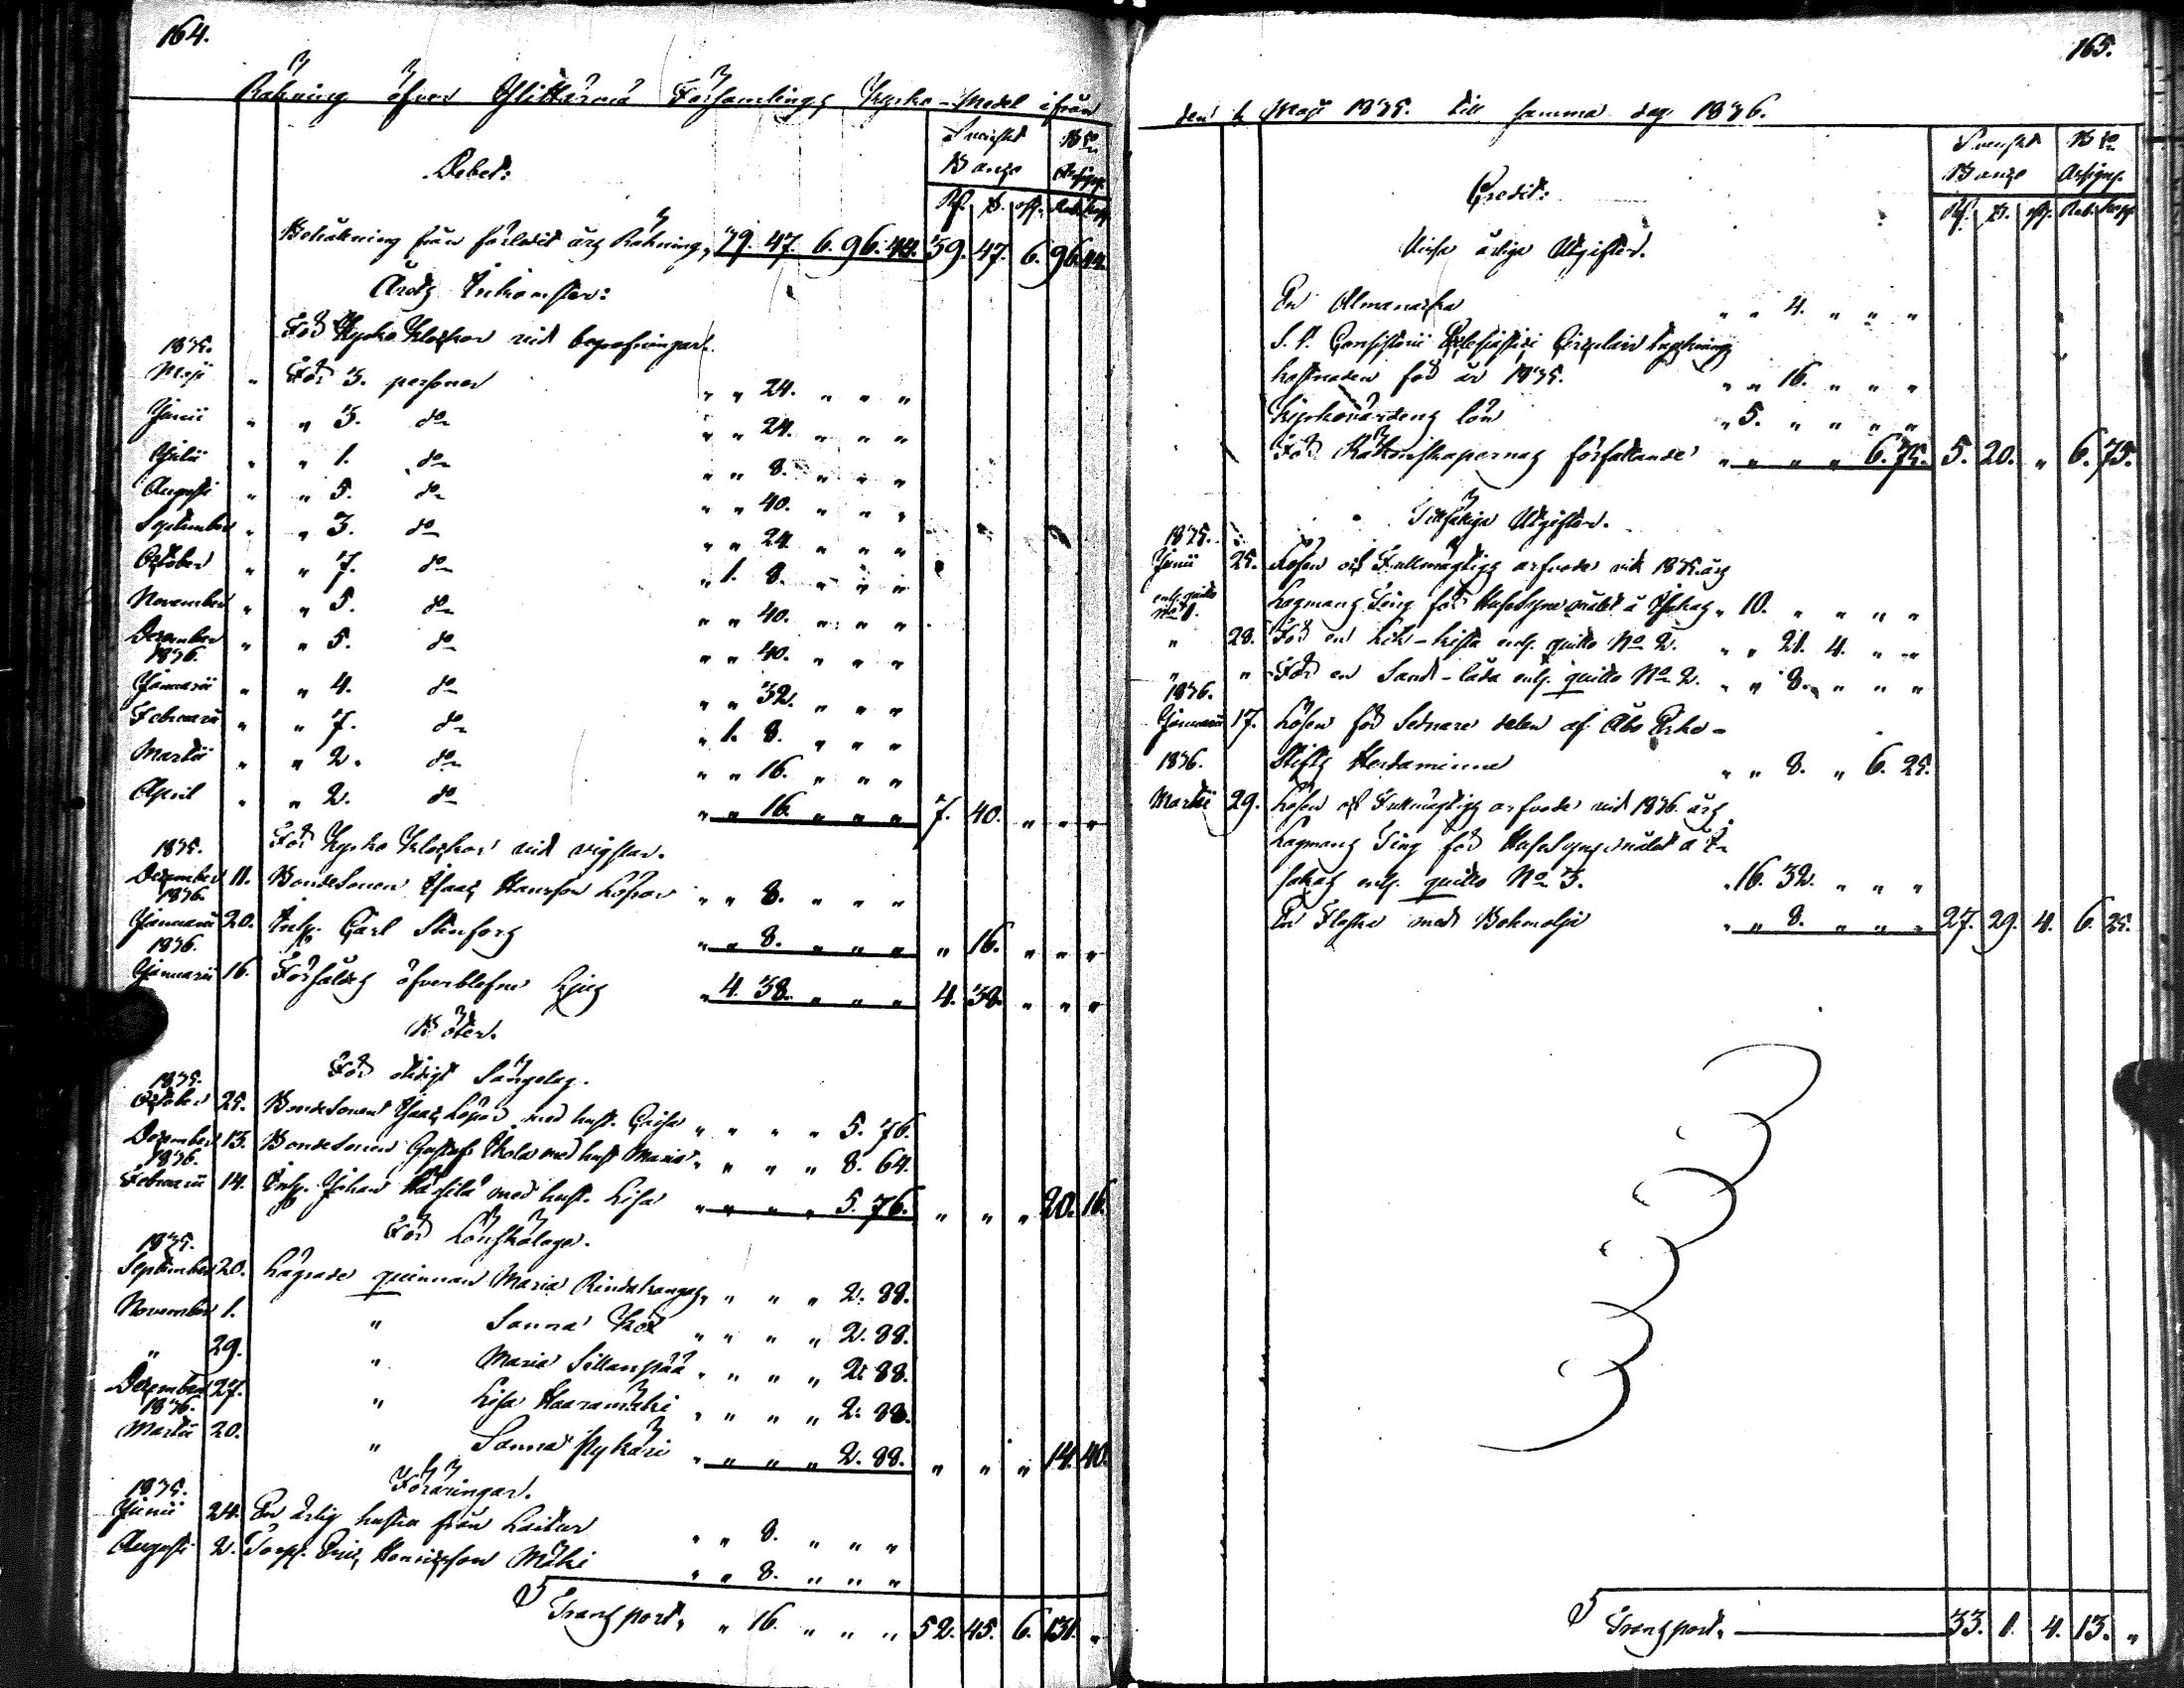 164.
Räkning öfver Ylistaro Församlings Kyrko-Medel ifrån
Debet:
Svenskt Banco
Bco Assign.
Rf. s. rst. Rub. Kop.
Behållning från förledit års Räkning, 39. 47. 6. 96. 44. 39. 47. 6. 96. 44.
Årets Inkomster:
1835. För Kyrko Klockor vid begrafningar.
Maji " För 3. personer " " 24. " " "
Junii " " 3. do " " 24. " " "
Julii " " 1. do " " 8. " " "
Augusti " " 5. do " " 40. " " "
September " " 3. do " " 24. " " "
October " " 7. do " 1. 8. " " "
November " " 5. do " " 40. " " "
December " " 5. do " " 40. " " "
1836.
Januarii " " 4. do " " 32. " " "
Februarii " " 7. do " 1. 8. " " "
Martii " " 2. do " " 16. " " "
April " " 2. do " " 16. " " " 7. 40. " " "
1835. För Kyrko Klockor vid vigslar.
December 11. Bondesonen Isaac Hansson " " 8. " " "
1836.
Januarii 20. Carl " " 8. " " " " 16. " " "
1836.
Januarii 16. Försåldes öfverblefne ljus " 4. 38. " " " 4. 38. " " "
Böter.
1835. För otidigt Sängelag.
October 25. Bondesonen Isaac med hust. Caisa " " " " 5. 76.
December 13. Bondesonen Gustaf med hust Maria " " " " 8. 64.
1836.
Februarii 14. Johan med hust. Lisa " " " " 5. 76. " " " 20. 16.
För Lönskaläge.
1835.
September 20. Lägrade quinnan Maria " " " " 2. 88.
November 1. " Sanna " " " " 2. 88.
" 29. " Maria Sillanpää " " " " 2. 88.
December 27. " Lisa Haaramäki " " " " 2. 88.
1836.
Martii 20. " Sanna " " " " 2. 88. " " " 14. 40.
Föräringar.
1835.
Junii 24. En ärlig hustru från " " 8. " " "
Augusti 2. Torp. Eric Henricsson Mäki " " 8. " " "
Transport, " 16. " " " 52. 45. 6. 131. "
165.
den 1 Maji 1835. till samma dag 1836.
Credit:
Svenskt Banco
Bco Assign.
Rf. s. rst. Rub. Kop.
Vissa årliga Utgifter.
En Almanacka " " 4. " " "
S. T. Consistorii Ecclesiastici Circulair trycknings
kostnaden för år 1835. " " 16. " " "
Kyrkovärdens lön " 5. " " " "
För Räkenskapernas författande " " " " 6. 75. 5. 20. " 6. 75.
Tillfällige Utgifter.
1835.
Junii 25. Lösen och Fullmägtigs arfvode vid 1835 års
enl. quitto No 1. Lagmans Ting för Husesyns målet " 10. " " " "
" 28. För en Lik-kista enl. quitto No 2. " " 21. 4. " "
" " För en Sand-låda enl. quitto No 2. " " 8. " " "
1836.
Januarii 17. Lösen för Sednare delen af Åbo Erke-
1836. Stifts Herdaminne " " 8. " 6. 25.
Martii 29. Lösen och Fullmägtigs arfvode vid 1836. års
Lagmans Ting för Husesyns målet
enl. quitto No 3. " 16. 32. " " "
En Flaska med Bokmolja " " 8. " " " 27. 29. 4. 6. 25.
Transport, 33. 1. 4. 13. "